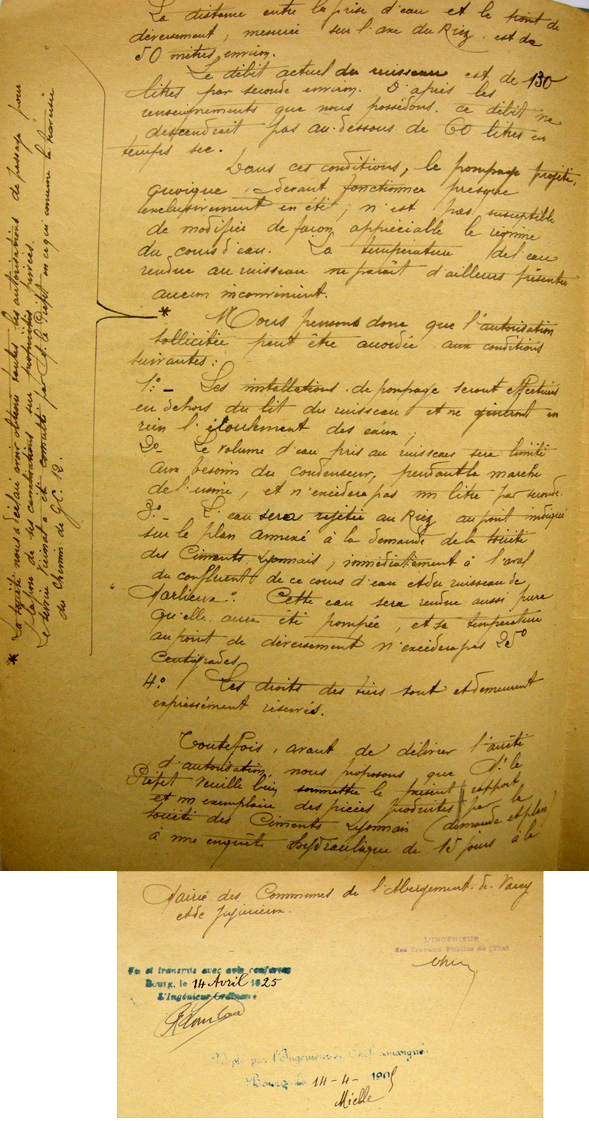 La distance entre la prise d'eau et le point de
déversement, mesurée sur l'axe du Riez, est de
50 mètres environ.
Le débit actuel du ruisseau est de 130
litres par seconde environ. D'après les
renseignements que nous possédons, ce débit ne
descendrait pas au-dessous de 60 litres en
temps sec.
Dans ces conditions, le pompage projeté,
quoique devant fonctionner presque
exclusivement en été, n'est pas susceptible
de modifier de façon appréciable le régime
du cours d'eau. La température de l'eau
rendue au ruisseau ne paraît d'ailleurs présenter
aucun inconvénient.
*
Nous pensons donc que l'autorisation
sollicitée peut être accordée aux conditions
suivantes :
1º - Les installations de pompage seront effectuées
en dehors du lit du ruisseau et ne gêneront en
rien l'écoulement des eaux;
2º - Le volume d'eau pris au ruisseau sera limité
aux besoins du condenseur, pendant la marche
de l'usine, et n'excédera pas un litre par seconde.
3º - L'eau sera rejetée au Riez au point indiqué
sur le plan annexé à la demande de la Société
des Ciments Lyonnais, immédiatement à l'aval
du confluent de ce cours d'eau et du ruisseau de
"Marlieux". Cette eau sera rendue aussi pure
qu'elle aura été pompée, et sa température
au point de déversement n'excédera pas 25º
Centigrades.
4º Les droits des tiers sont et demeurent
expressément réservés.
Toutefois, avant de délivrer l'arrêté
d'autorisation, nous proposons que M. le
Préfet veuille bien soumettre le présent rapport
et un exemplaire des pièces produites par la
Société des Ciments Lyonnais (demande et plan)
à une enquête hydraulique de 15 jours à la
Mairie des Communes de l'Abergement-de-Varey
et de Jujurieux.
* La Société nous a déclaré avoir obtenu toutes les autorisations de passage pour
la pose de ses canalisations sur propriétés privées.
Le service vicinal a été consulté par M. le Préfet en ce qui concerne la traversée
du Chemin de G.C. 12.
L'INGÉNIEUR
des Travaux Publics de l'Etat
Vu et transmis avec avis conforme
Bourg, le 14 Avril 1925
L'Ingénieur Ordinaire
par l'Ingénieur en Chef soussigné
Bourg, le 14-4-